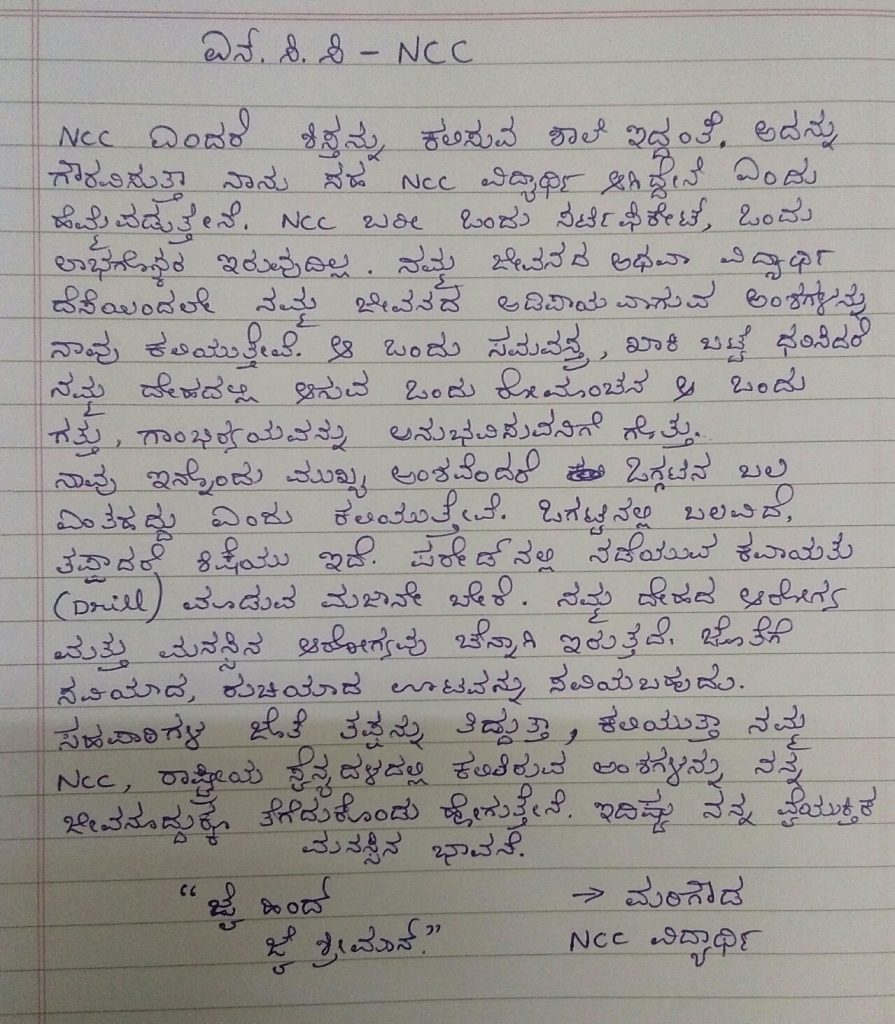 ಎನ್. ಸಿ. ಸಿ - NCC
NCC ಎಂದರೆ ಶಿಸ್ತನ್ನು ಕಲಿಸುವ ಶಾಲೆ ಇದ್ದಂತೆ. ಅದನ್ನು
ಗೌರವಿಸುತ್ತಾ ನಾನು ಸಹ NCC ವಿದ್ಯಾರ್ಥಿ ಆಗಿದ್ದೇನೆ ಎಂದು
ಹೆಮ್ಮೆಪಡುತ್ತೇನೆ. NCC ಬರೀ ಒಂದು ಸರ್ಟಿಫಿಕೇಟ್, ಒಂದು
ಲಾಭಗೋಸ್ಕರ ಇರುವುದಿಲ್ಲ. ನಮ್ಮ ಜೀವನದ ಅಥವಾ ವಿದ್ಯಾರ್ಥಿ
ದೆಸೆಯಿಂದಲೇ ನಮ್ಮ ಜೀವನದ ಅಡಿಪಾಯವಾಗುವ ಅಂಶಗಳನ್ನು
ನಾವು ಕಲಿಯುತ್ತೇವೆ. ಆ ಒಂದು ಸಮವಸ್ತ್ರ, ಖಾಕಿ ಬಟ್ಟೆ ಧರಿಸಿದರೆ
ನಮ್ಮ ದೇಹದಲ್ಲಿ ಆಗುವ ಒಂದು ರೋಮಾಂಚನ ಆ ಒಂದು
ಗತ್ತು, ಗಾಂಭಿರ್ಯಯವನ್ನು ಅನುಭವಿಸುವವನಿಗೆ ಗೊತ್ತು.
ನಾವು ಇನ್ನೊಂದು ಮುಖ್ಯ ಅಂಶವೆಂದರೆ ಒಗ್ಗಟಿನ ಬಲ
ಎಂತಹದ್ದು ಎಂದು ಕಲಿಯುತ್ತೇವೆ. ಒಗಟ್ಟಿನಲ್ಲಿ ಬಲವಿದೆ,
ತಪ್ಪಾದರೆ ಶಿಕ್ಷೆಯು ಇದೆ. ಪರೇಡ್ ನಲ್ಲಿ ನಡೆಯುವ ಕವಾಯತು
(Drill) ಮಾಡುವ ಮಜಾನೇ ಬೇರೆ. ನಮ್ಮ ದೇಹದ ಆರೋಗ್ಯ
ಮತ್ತು ಮನಸ್ಸಿನ ಆರೋಗ್ಯವು ಚೆನ್ನಾಗಿ ಇರುತ್ತದೆ. ಜೊತೆಗೆ
ಸವಿಯಾದ, ರುಚಿಯಾದ ಊಟವನ್ನು ಸವಿಯಬಹುದು.
ಸಹಪಾಠಿಗಳ ಜೊತೆ ತಪ್ಪನ್ನು ತಿದ್ದುತ್ತಾ, ಕಲಿಯುತ್ತಾ ನಮ್ಮ
NCC, ರಾಷ್ಟ್ರೀಯ ಸೈನ್ಯದಳದಲ್ಲಿ ಕಲಿತಿರುವ ಅಂಶಗಳನ್ನು ನನ್ನ
ಜೀವನದುದ್ದಕ್ಕೂ ತೆಗೆದುಕೊಂಡು ಹೋಗುತ್ತೇನೆ. ಇದಿಷ್ಟು ನನ್ನ ವೈಯುಕ್ತಿಕ
ಮನಸ್ಸಿನ ಭಾವನೆ.
"ಜೈ ಹಿಂದ್ → ಮರಿಗೌಡ
ಜೈ ಶ್ರೀಮಾನ್." NCC ವಿದ್ಯಾರ್ಥಿ